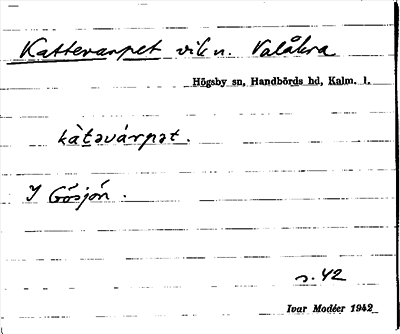 Kattevarpet vik n. Valåkra
Högsby sn, Handbörds hd, Kalm. l.
kàtəvárpət.
I Gösjón.
s. 42
Ivar Modéer 1942